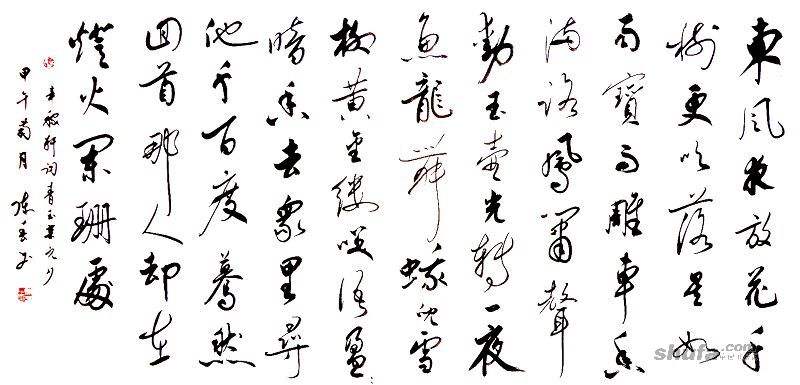 東風夜放花千
樹更吹落星如
雨寶馬雕車香
滿路鳳簫聲
動玉壺光轉一夜
魚龍舞蛾兒雪
柳黃金縷笑語盈:
暗香去衆里尋
他千百度驀然
回首那人却在
燈火闌珊處
辛稼軒詞青玉案元夕
甲午菊月
shufa.com